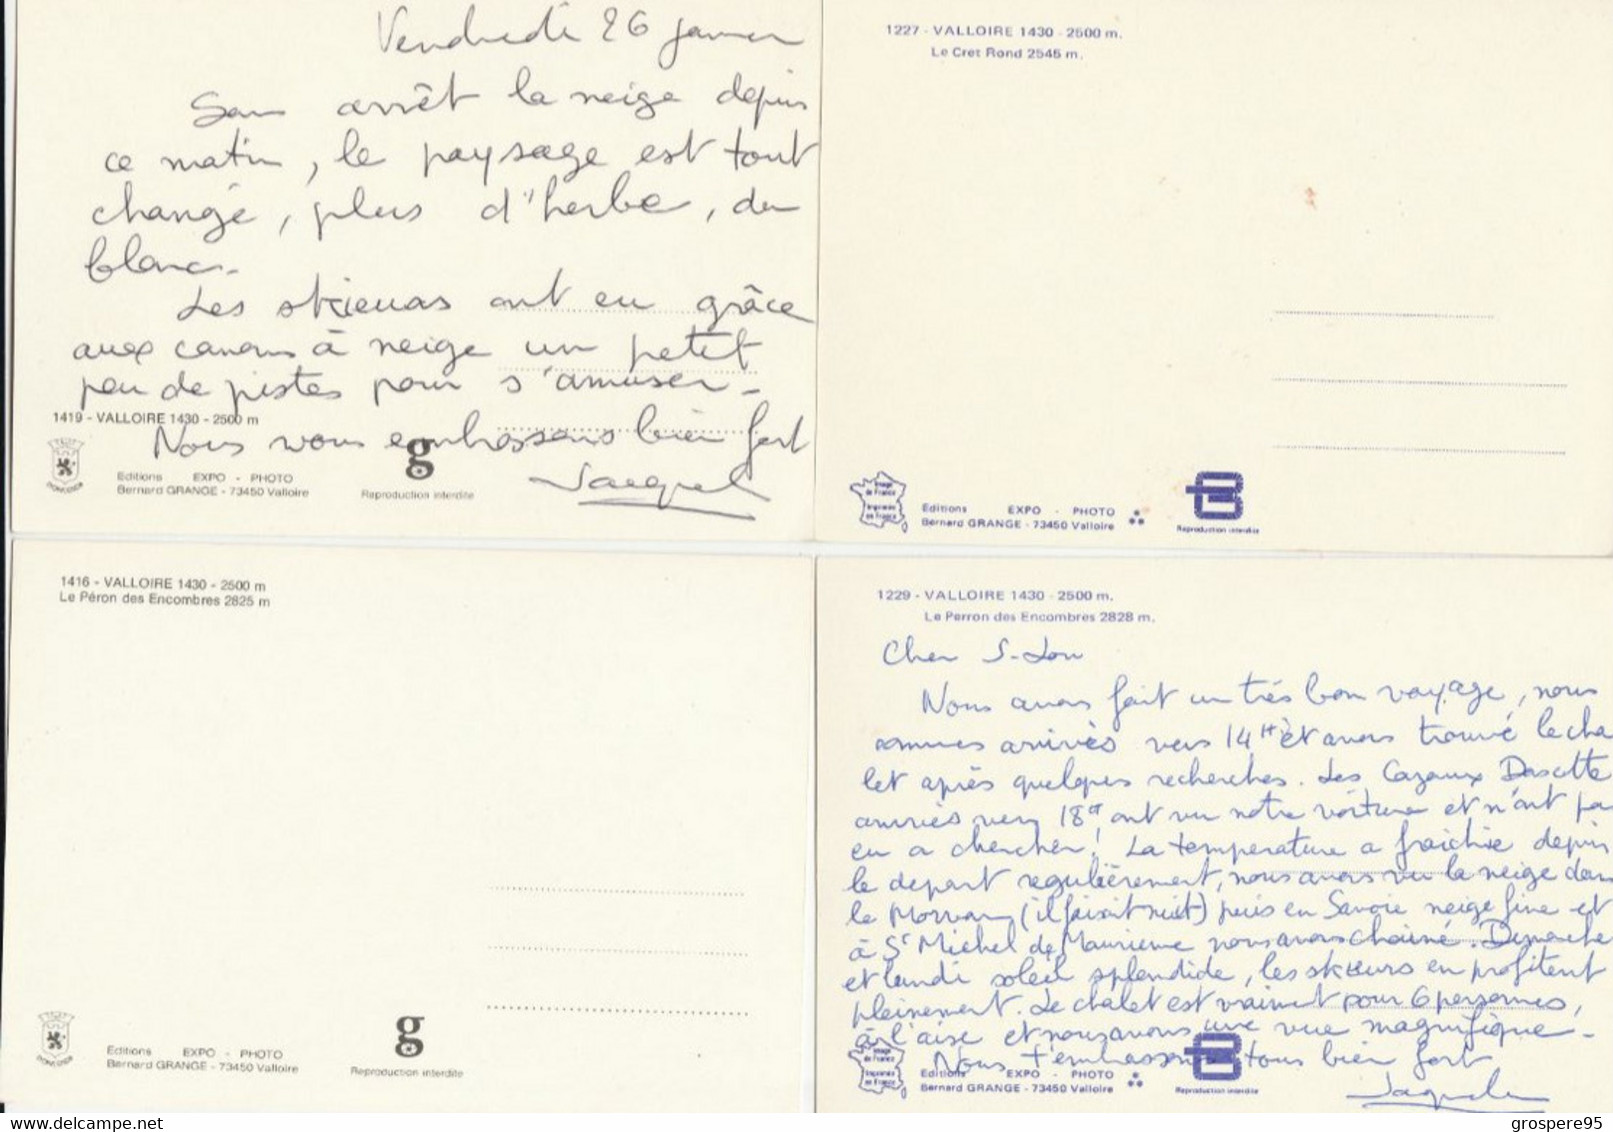 Vendredi 26 janvier
Sans arrêt la neige depuis
ce matin, le paysage est tout
changé, plus d'herbe, du
blanc.
Les skieurs ont eu grâce
aux canons à neige un petit
peu de pistes pour s'amuser -
1419 - VALLOIRE 1430 - 2500 m
Nous vous embrassons bien fort
Editions EXPO - PHOTO
Bernard GRANGE - 73450 Valloire
g
Reproduction interdite
1227 - VALLOIRE 1430 - 2500 m.
Le Cret Rond 2545 m.
Image de France
Imprimée en France
Editions EXPO - PHOTO
Bernard GRANGE - 73450 Valloire
Reproduction interdite
1416 - VALLOIRE 1430 - 2500 m
Le Péron des Encombres 2825 m
Editions EXPO - PHOTO
Bernard GRANGE - 73450 Valloire
g
Reproduction interdite
1229 - VALLOIRE 1430 - 2500 m.
Le Perron des Encombres 2828 m.
Cher
Nous avons fait un très bon voyage, nous
sommes arrivés vers 14H et avons trouvé le cha
let après quelques recherches. Les Cazaux
arrivés vers 18H, ont vu notre voiture et n'ont pas
eu a chercher! La temperature a fraichie depuis
le depart regulièrement, nous avons vu la neige dans
le Morvan (il faisait nuit) puis en Savoie neige fine et
à St Michel de Maurienne nous avons chainé. Dimanche
et lundi soleil splendide, les skieurs en profitent
pleinement. Le chalet est vraiment pour 6 personnes,
à l'aise et nous avons une vue magnifique -
Nous t'embrassons tous bien fort
Image de France
Imprimée en France
Editions EXPO - PHOTO
Bernard GRANGE - 73450 Valloire
Reproduction interdite
delcampe.net
grospere95